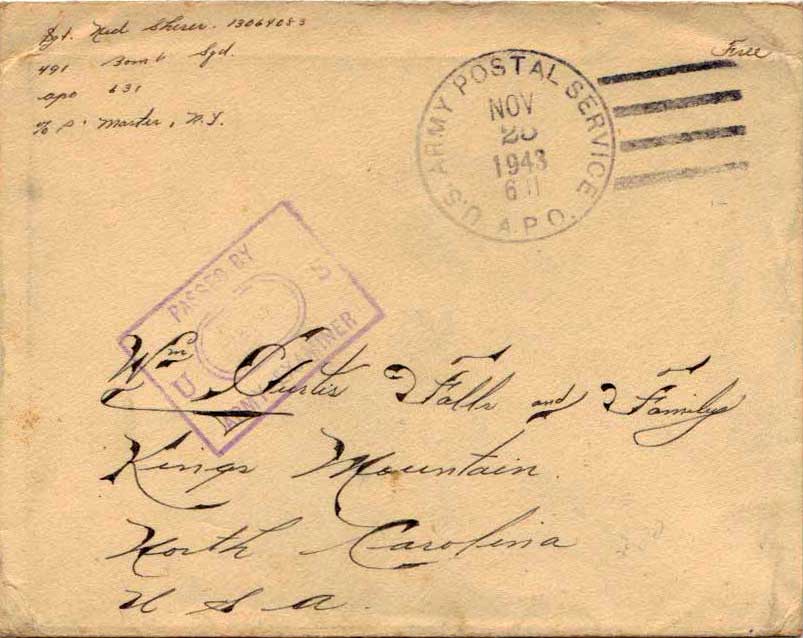 Sgt. Ned Sherer. 13064083
491 Bomb Sqd.
apo 631
% P. Master, N.Y.
Free
U.S. ARMY POSTAL SERVICE
NOV
1943
A.P.O.
PASSED BY
U S
ARMY EXAMINER
Wm Curtis Falls and Family
Kings Mountain
North Carolina
U S A.